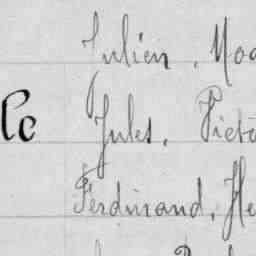 Julien, Noa
le Jules, Victo
Ferdinand, He